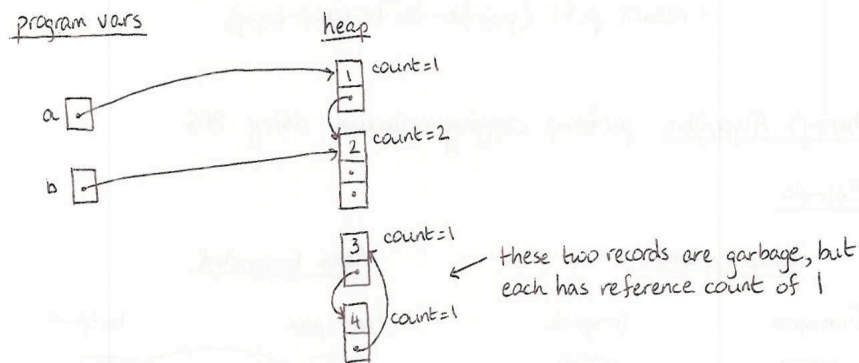 program vars
heap
1 count=1
a
2 count=2
b
3 count=1
these two records are garbage, but
each has reference count of 1
4 count=1